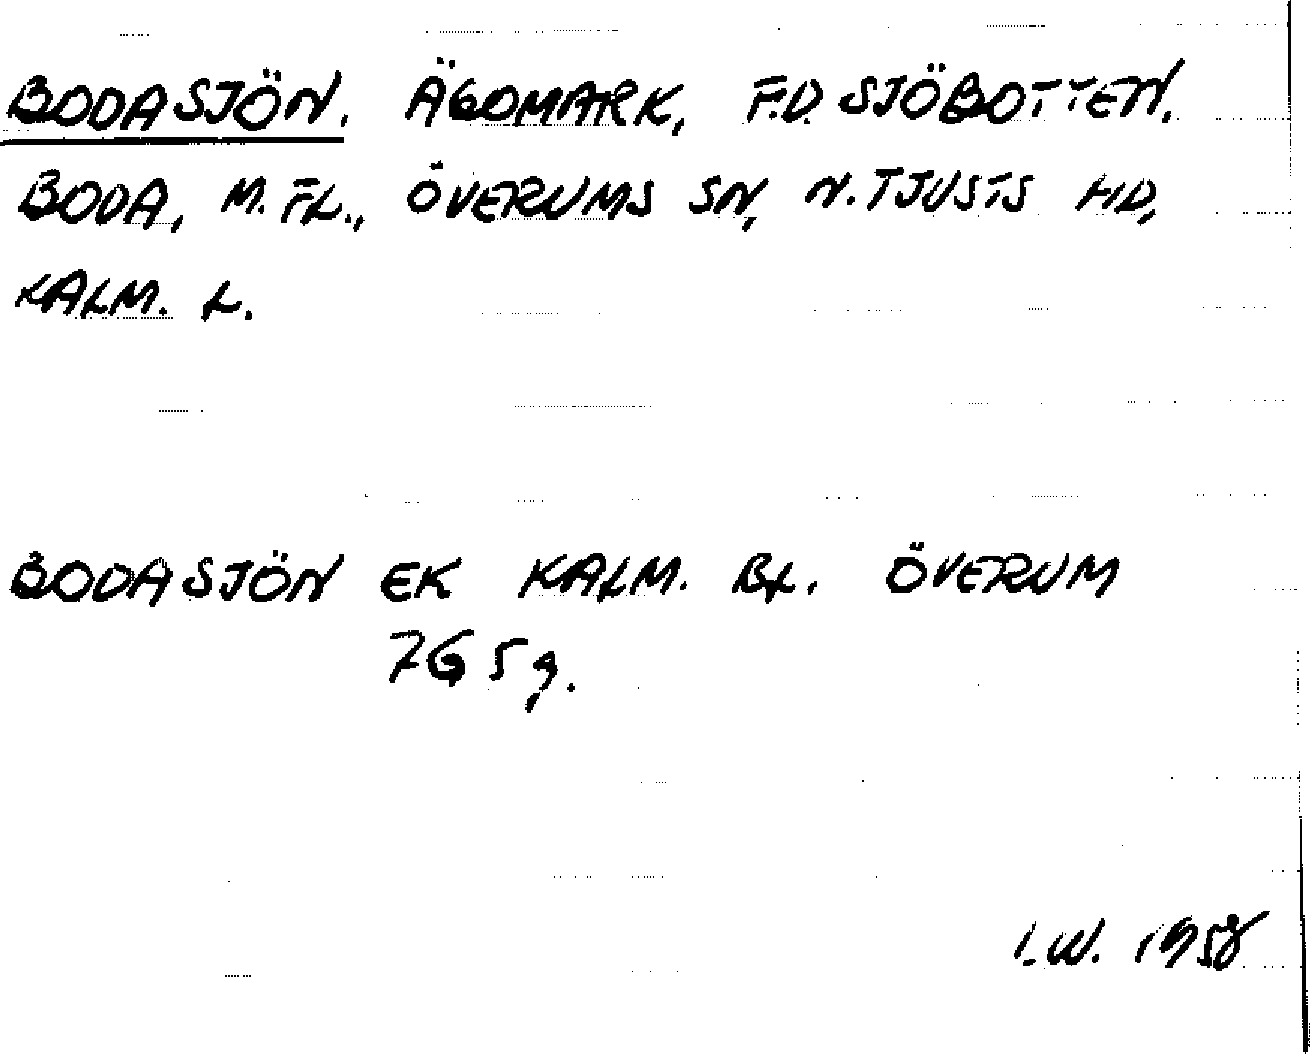 BODASJÖN. ÄGOMARK, F.D. SJÖBOTTEN.
BODA, M. FL., ÖVERUMS SN, N. TJUSTS HD,
KALM. L.
BODASJÖN EK KALM. BL. ÖVERUM
7G 5g.
I.W. 1958